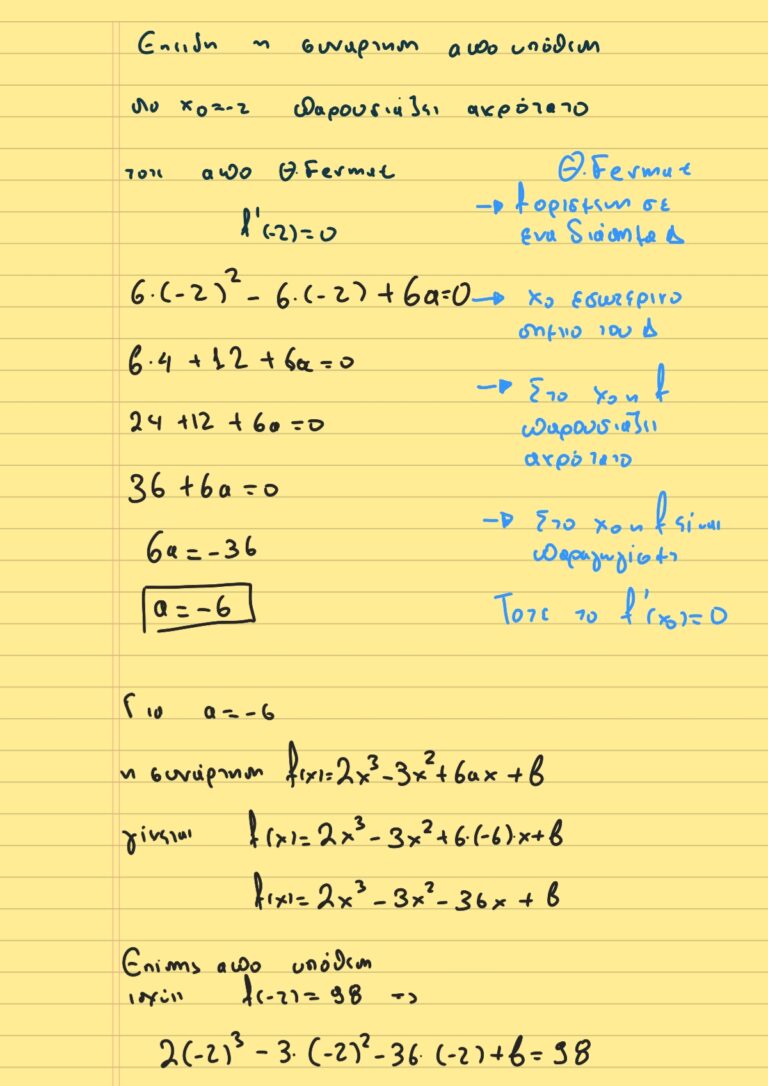 Επειδη η συναρτηση απο υπόθεση
στο x₀=-2 παρουσιάζει ακρότατο
τοτε απο Θ.Fermat
f'(-2)=0
6·(-2)² - 6·(-2) + 6α=0
6·4 + 12 + 6α=0
24 +12 + 6α=0
36 +6α=0
6α=-36
α=-6
Θ.Fermat
→ f οριστεινη σε
ενα διάστημα Δ
→ x₀ εσωτερικο
σημειο του Δ
→ Στο x₀ η f
παρουσιαζει
ακρότατο
→ Στο x₀ η f είναι
παραγωγίσιμη
Τοτε το f'(x₀)=0
Για α=-6
η συνάρτηση f(x)=2x³-3x²+6αx+β
γίνεται f(x)=2x³-3x²+6·(-6)·x+β
f(x)=2x³-3x²-36x+β
Επίσης απο υπόθεση
ισχύει f(-2)=98 =>
2(-2)³ - 3·(-2)² - 36·(-2)+β=98